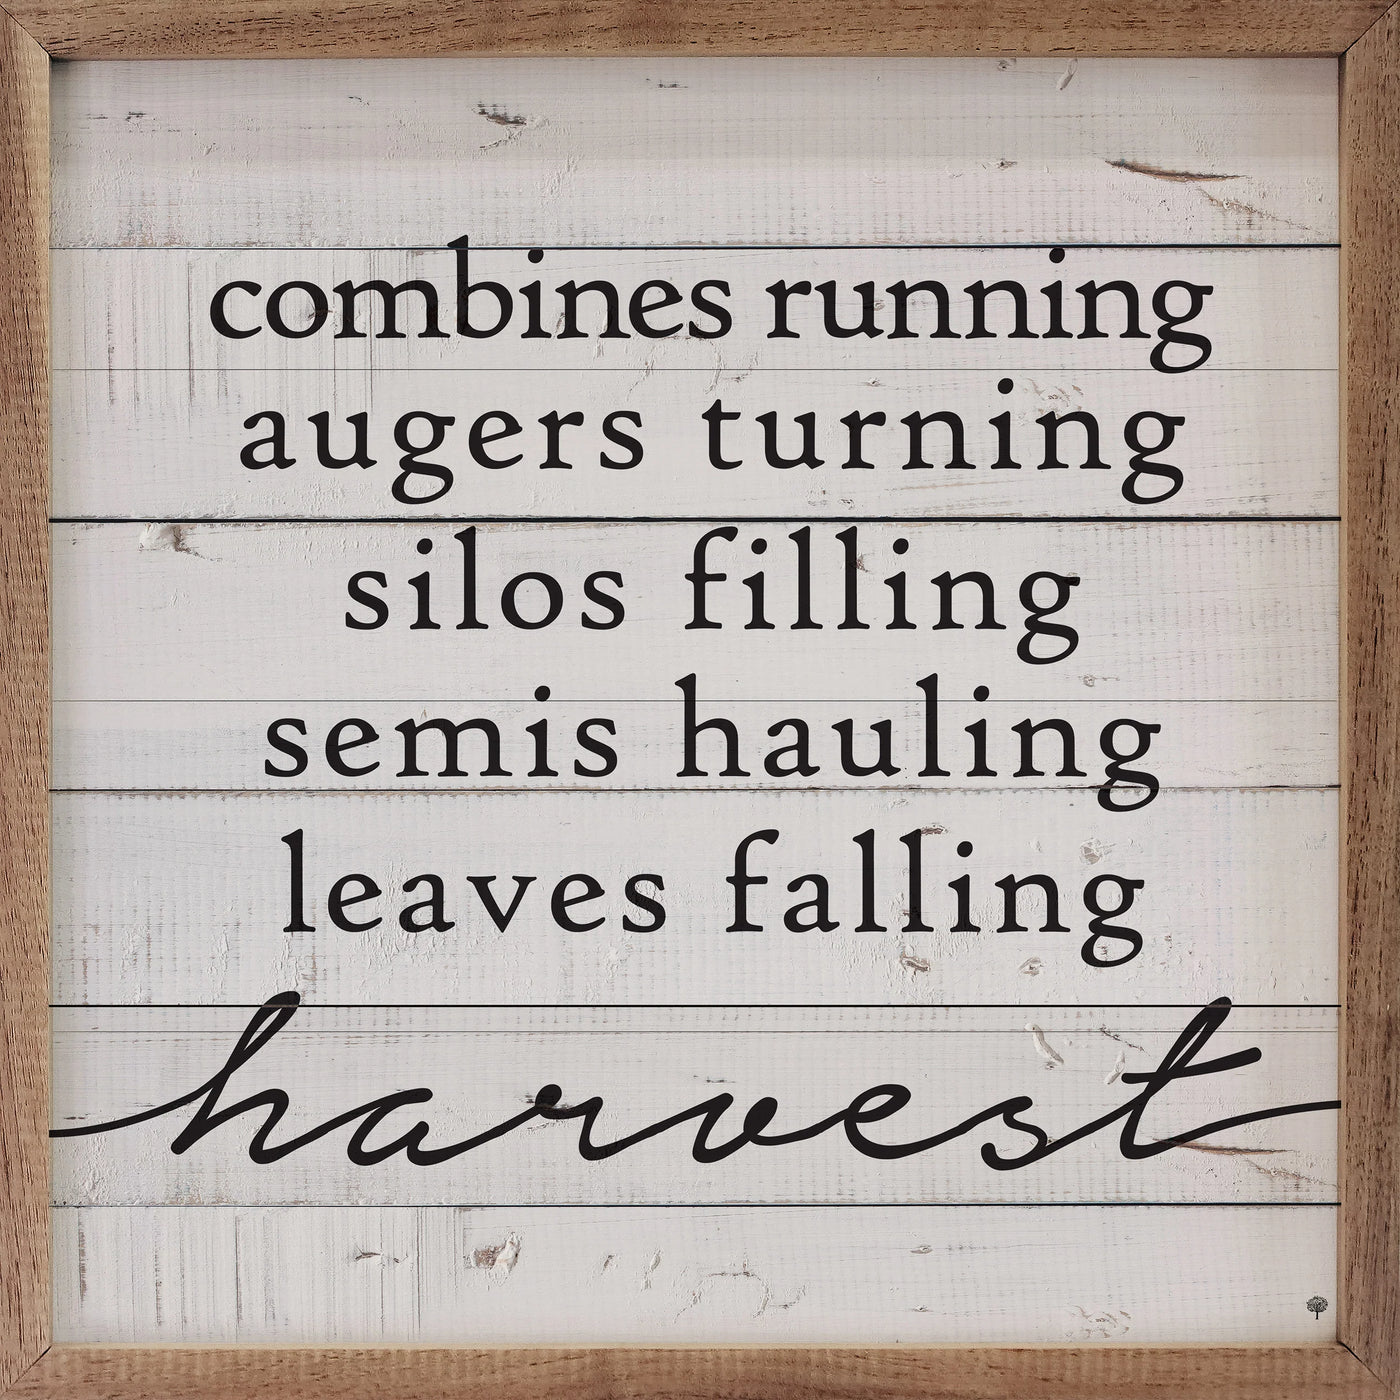 combines running
augers turning
silos filling
semis hauling
leaves falling
harvest